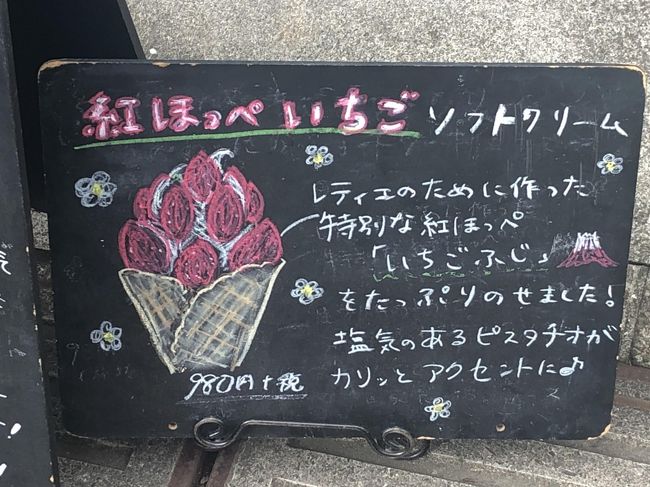 紅ほっぺ いちご ソフトクリーム
レティエのために作った
特別な紅ほっぺ
「いちごふじ」
をたっぷりのせました!
塩気のあるピスタチオが
カリッとアクセントに♪
980円+税